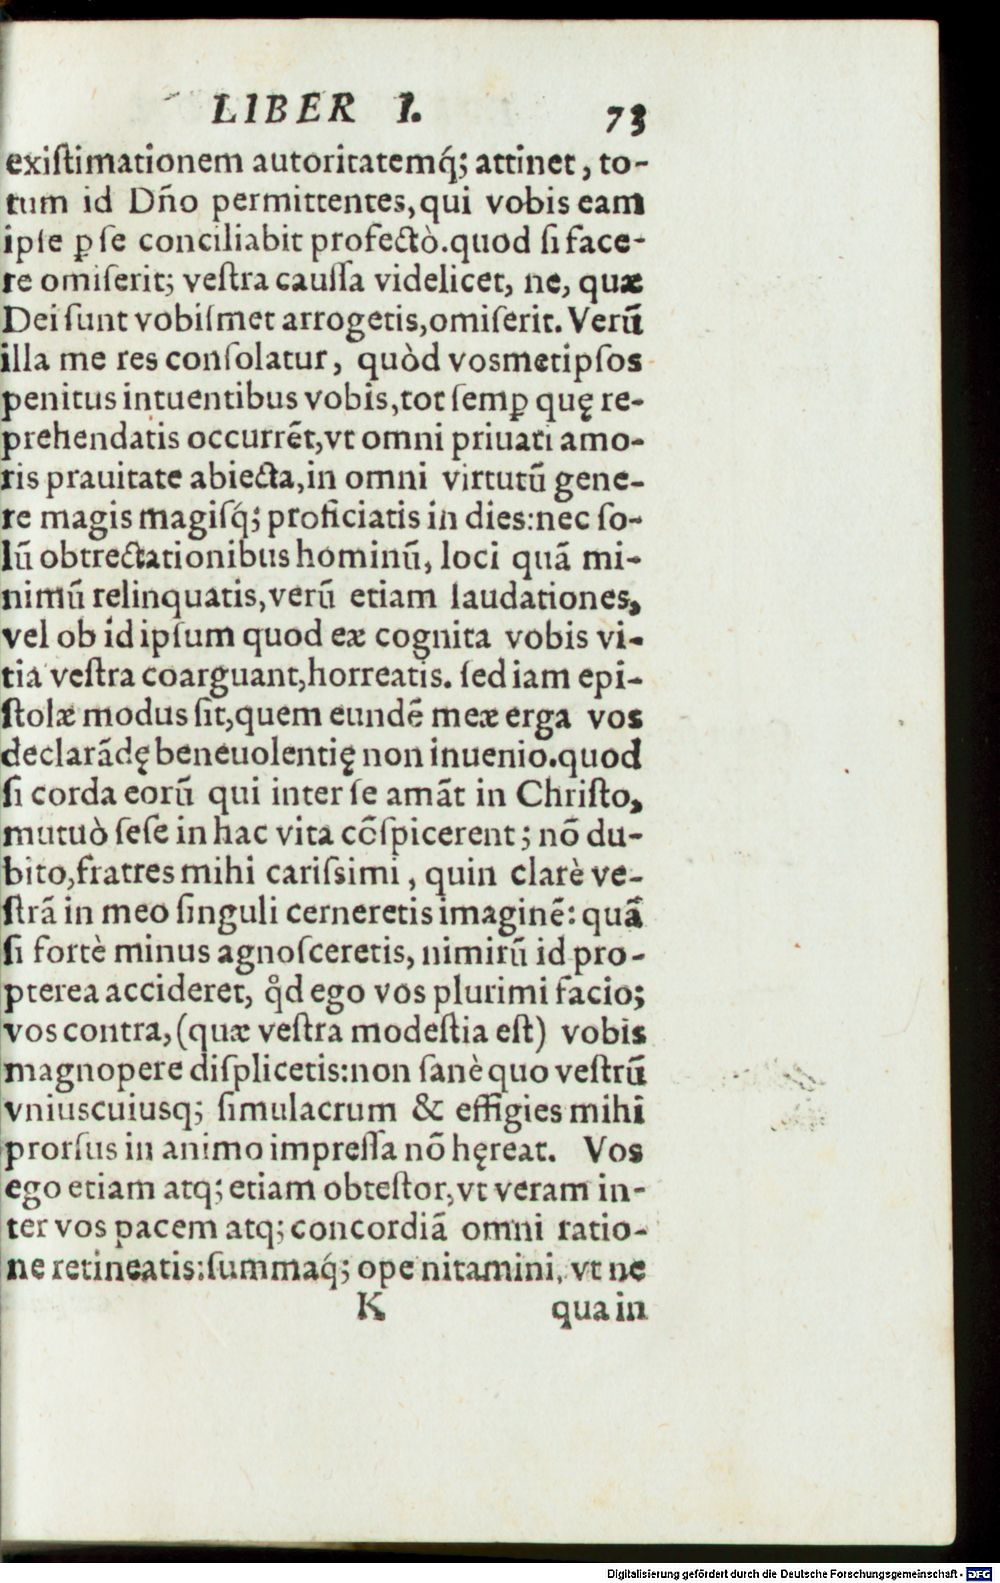 LIBER I. 73
exiſtimationem autoritatemq́; attinet, to-
tum id Dño permittentes, qui vobis eam
ipſe ꝑ ſe conciliabit profectò. quod ſi face-
re omiſerit; veſtra cauſſa videlicet, ne, quæ
Dei ſunt vobiſmet arrogetis, omiſerit. Verũ
illa me res conſolatur, quòd vosmetipſos
penitus intuentibus vobis, tot ſemꝑ quę re-
prehendatis occurrẽt, vt omni priuati amo-
ris prauitate abiecta, in omni virtutũ gene-
re magis magiſq́; proficiatis in dies: nec ſo-
lũ obtrectationibus hominũ, loci quã mi-
nimũ relinquatis, verũ etiam laudationes,
vel ob id ipſum quod eæ cognita vobis vi-
tia veſtra coarguant, horreatis. ſed iam epi-
ſtolæ modus ſit, quem eundẽ meæ erga vos
declarãdę beneuolentię non inuenio. quod
ſi corda eorũ qui inter ſe amãt in Chriſto,
mutuò ſeſe in hac vita cõſpicerent; nõ du-
bito, fratres mihi cariſsimi, quin clarè ve-
ſtrã in meo ſinguli cerneretis imaginẽ: quã
ſi fortè minus agnoſceretis, nimirũ id pro-
pterea accideret, qd̊ ego vos plurimi facio;
vos contra, (quæ veſtra modeſtia eſt) vobis
magnopere diſplicetis: non ſanè quo veſtrũ
vniuscuiusq; ſimulacrum & effigies mihi
prorſus in animo impreſſa nõ hęreat. Vos
ego etiam atq; etiam obteſtor, vt veram in-
ter vos pacem atq; concordiã omni ratio-
ne retineatis: ſummaq́; ope nitamini, vt ne
K qua in
Digitalisierung gefördert durch die Deutsche Forschungsgemeinschaft - DFG